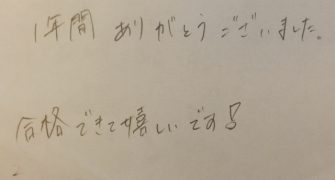 1年間 ありがとうございました。
合格できて嬉しいです!